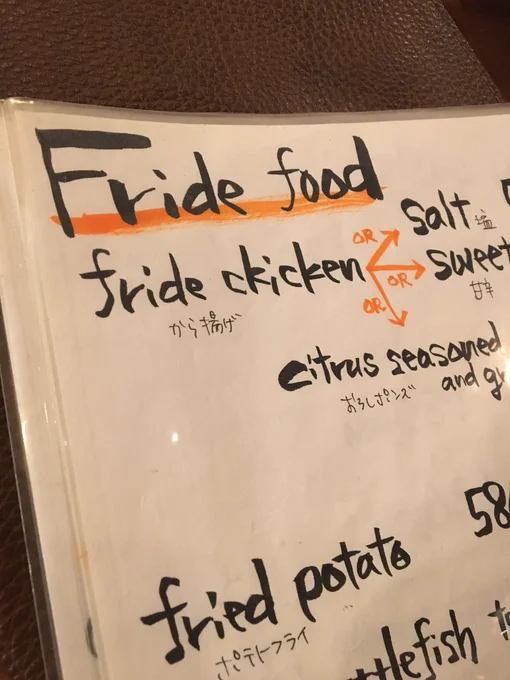 Fride food
fride ckicken
から揚げ
OR
salt 塩
OR
sweet
甘辛
OR
citrus seasoned
and
おろしポンズ
58
fried potato
ポテトフライ